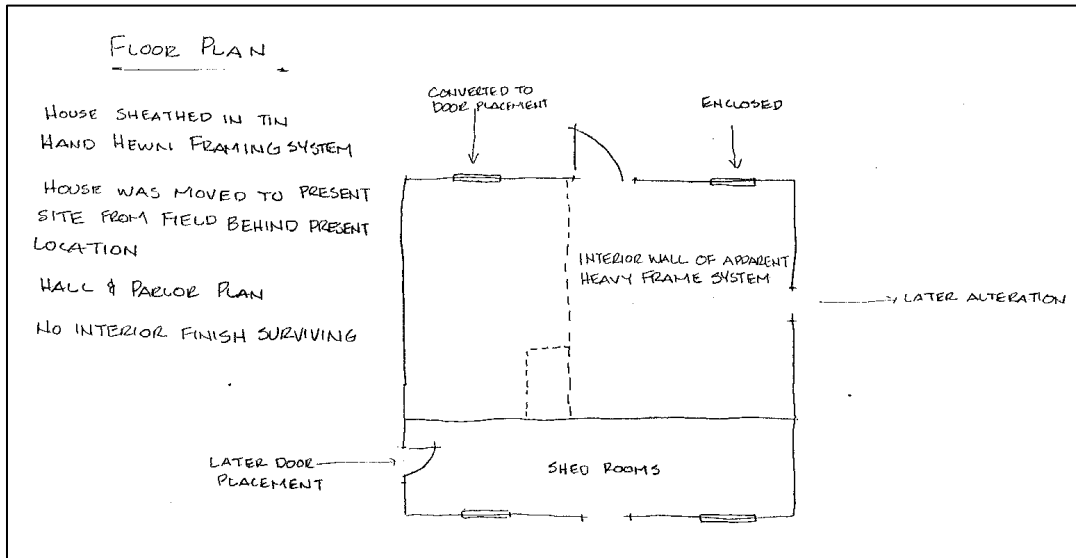 FLOOR PLAN
HOUSE SHEATHED IN TIN
HAND HEWN FRAMING SYSTEM
HOUSE WAS MOVED TO PRESENT
SITE FROM FIELD BEHIND PRESENT
LOCATION
HALL & PARLOR PLAN
NO INTERIOR FINISH SURVIVING
CONVERTED TO
DOOR PLACEMENT
ENCLOSED
INTERIOR WALL OF APPARENT
HEAVY FRAME SYSTEM
LATER ALTERATION
LATER DOOR
PLACEMENT
SHED ROOMS